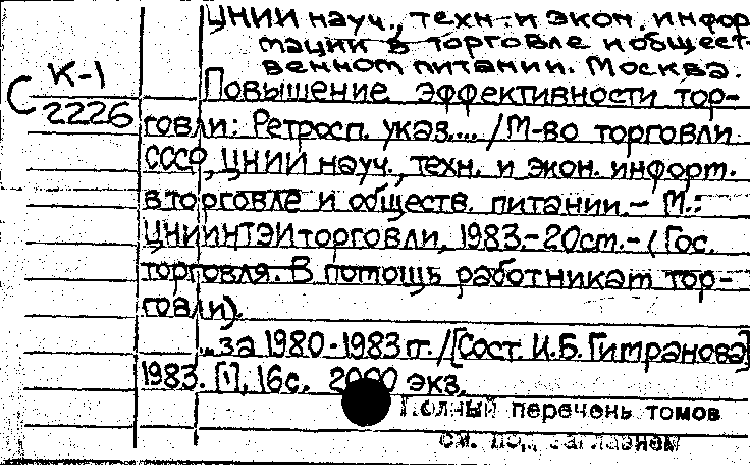 ЦНИИ науч., техн. и экон. инфор
мации в торговле и общест-
венном питании. Москва.
С К-1
2226
Повышение эффективности тор-
говли: Ретросп. указ.... / М-во торговли
СССР, ЦНИИ науч., техн. и экон. информ.
в торговле и обществ. питании. – М.:
ЦНИИНТЭИторговли, 1983 – 20см. – (Гос.
торговля. В помощь работникам тор-
говли).
...за 1980-1983 гг. / [Сост. И.Б. Гитранова]
1983. [1], 16с. 2000 экз.
Полный перечень томов
см. под заглавием